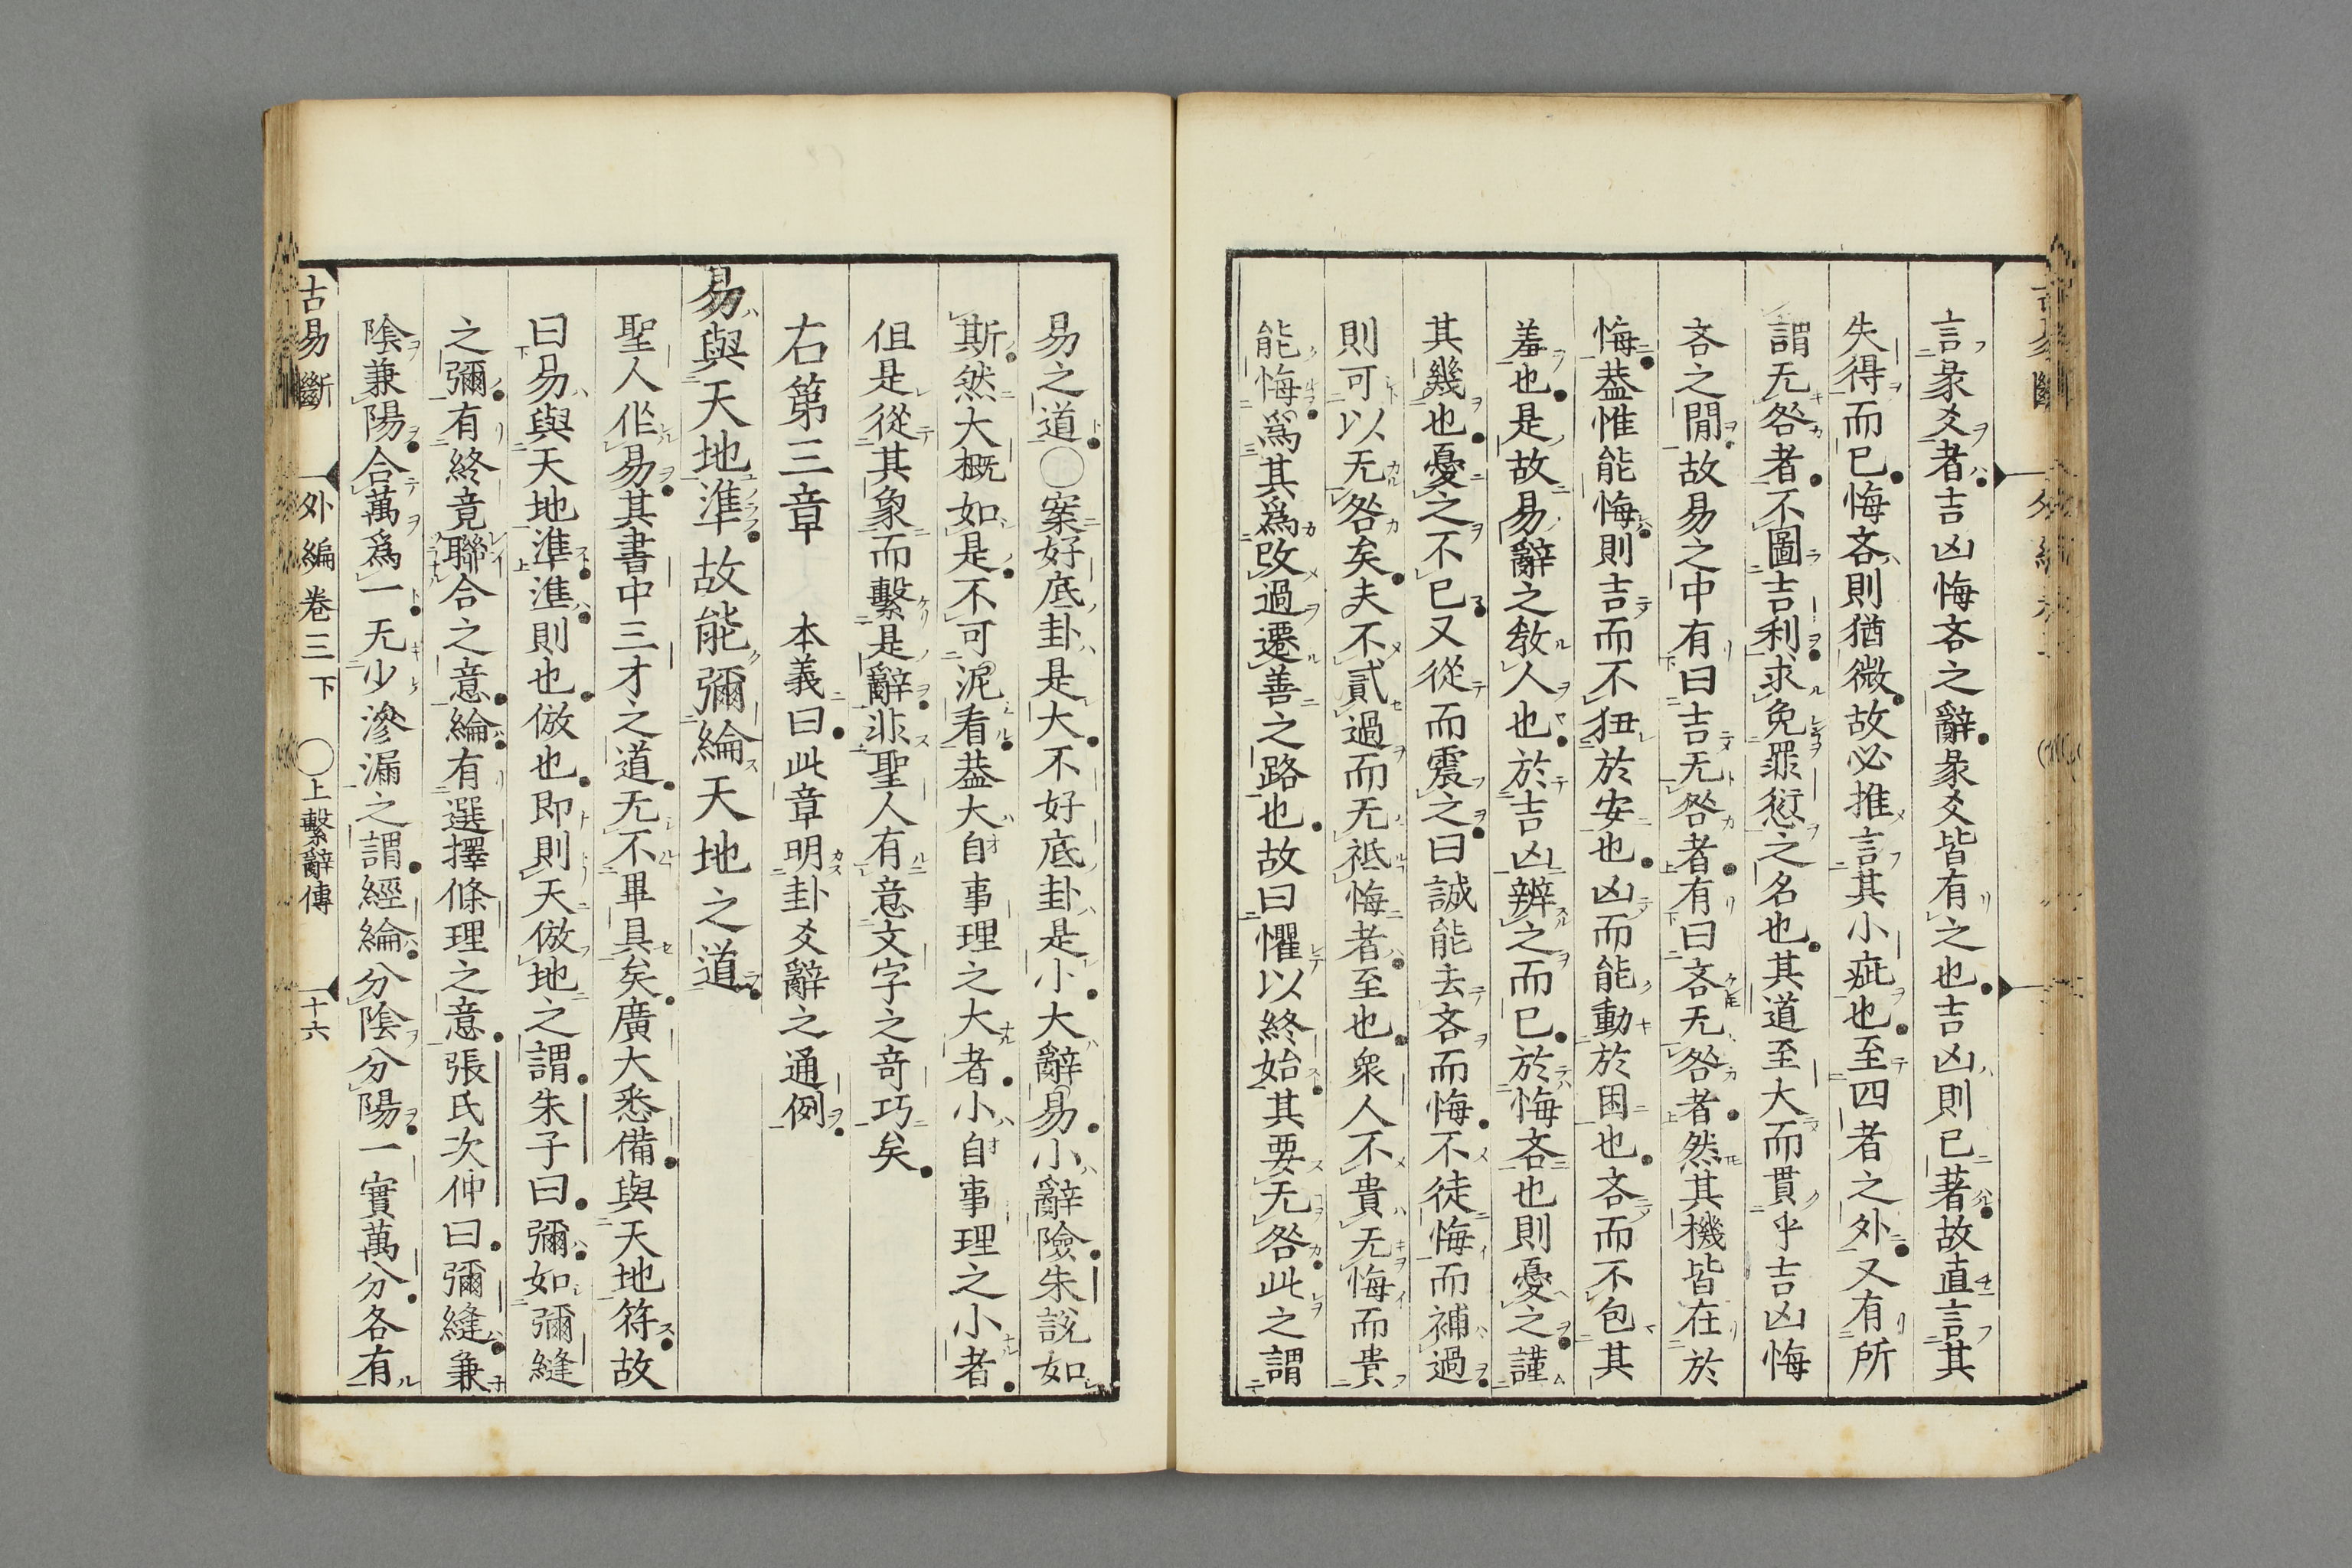 言彖爻者吉凶悔吝之辭彖爻皆有之也吉凶則已著故直言其
失得而已悔吝則猶微故必推言其小疵也至四者之外又有所
謂无咎者不圖吉利求免罪愆之名也其道至大而貫乎吉凶悔
吝之閒故易之中有曰吉无咎者有曰吝无咎者然其機皆在於
悔葢惟能悔則吉而不狃於安也凶而能動於困也吝而不包其
羞也是故易辭之敎人也於吉凶辨之而已於悔吝也則憂之謹
其幾也憂之不已又從而震之曰誠能去吝而悔不徒悔而補過
則可以无咎矣夫不貳過而无祗悔者至也衆人不貴无悔而貴
能悔爲其爲改過遷善之路也故曰懼以終始其要无咎此之謂
易之道〇案好底卦是大不好底卦是小大辭易小辭險朱説如
斯然大概如是不可泥看葢大自事理之大者小自事理之小者
但是從其象而繫是辭非聖人有意文字之竒巧矣
右第三章　本義曰此章明卦爻辭之通例
易與天地準故能彌綸天地之道
聖人作易其書中三才之道无不畢具矣廣大悉備與天地符故
曰易與天地準準則也倣也即則天倣地之謂朱子曰彌如彌縫
之彌有終竟聯合之意綸有選擇條理之意張氏次仲曰彌縫兼
陰兼陽合萬爲一无少滲漏之謂經綸分陰分陽一實萬分各有
古易斷　外編卷三下　〇上繫辭傳　十六